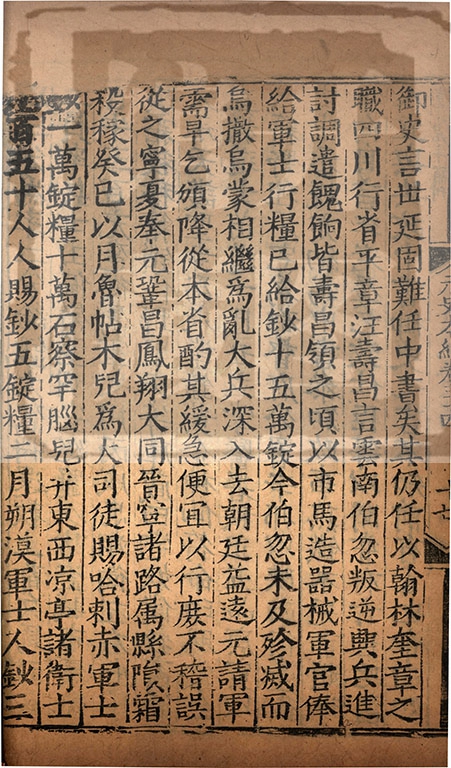 御史言世延固難任中書矣其仍任以翰林奎章之
職四川行省平章汪壽昌言雲南伯忽叛逆興兵進
討調遣餽餉皆壽昌領之頃以市馬造器械軍官俸
給軍士行糧已給鈔十五萬錠今伯忽未及殄滅而
烏撒烏蒙相繼爲亂大兵深入去朝廷益遠元請軍
需早乞頒降從本省酌其緩急便冝以行庻不稽誤
從之寧夏奉元鞏昌鳳翔大同晉寕諸路属縣隕霜
殺稼癸巳以月魯帖木兒爲大司徒賜哈剌赤軍士
鈔一萬錠糧十萬石察罕腦兒并東西凉亭諸衛士
百五十人人賜鈔五錠糧二月朔漠軍士人鈔三
元史本紀卷三四
十七